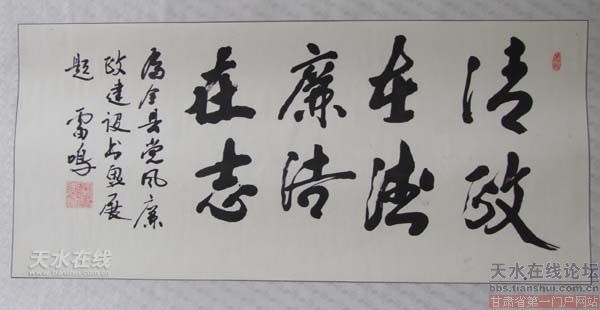 清政
在德
廉洁
在志
为全县党风廉
政建设书画展
题 雷鸣
天水在线
www.tianshui.com.cn
天水在线论坛
bbs.tianshui.com.cn
甘肃省第一门户网站